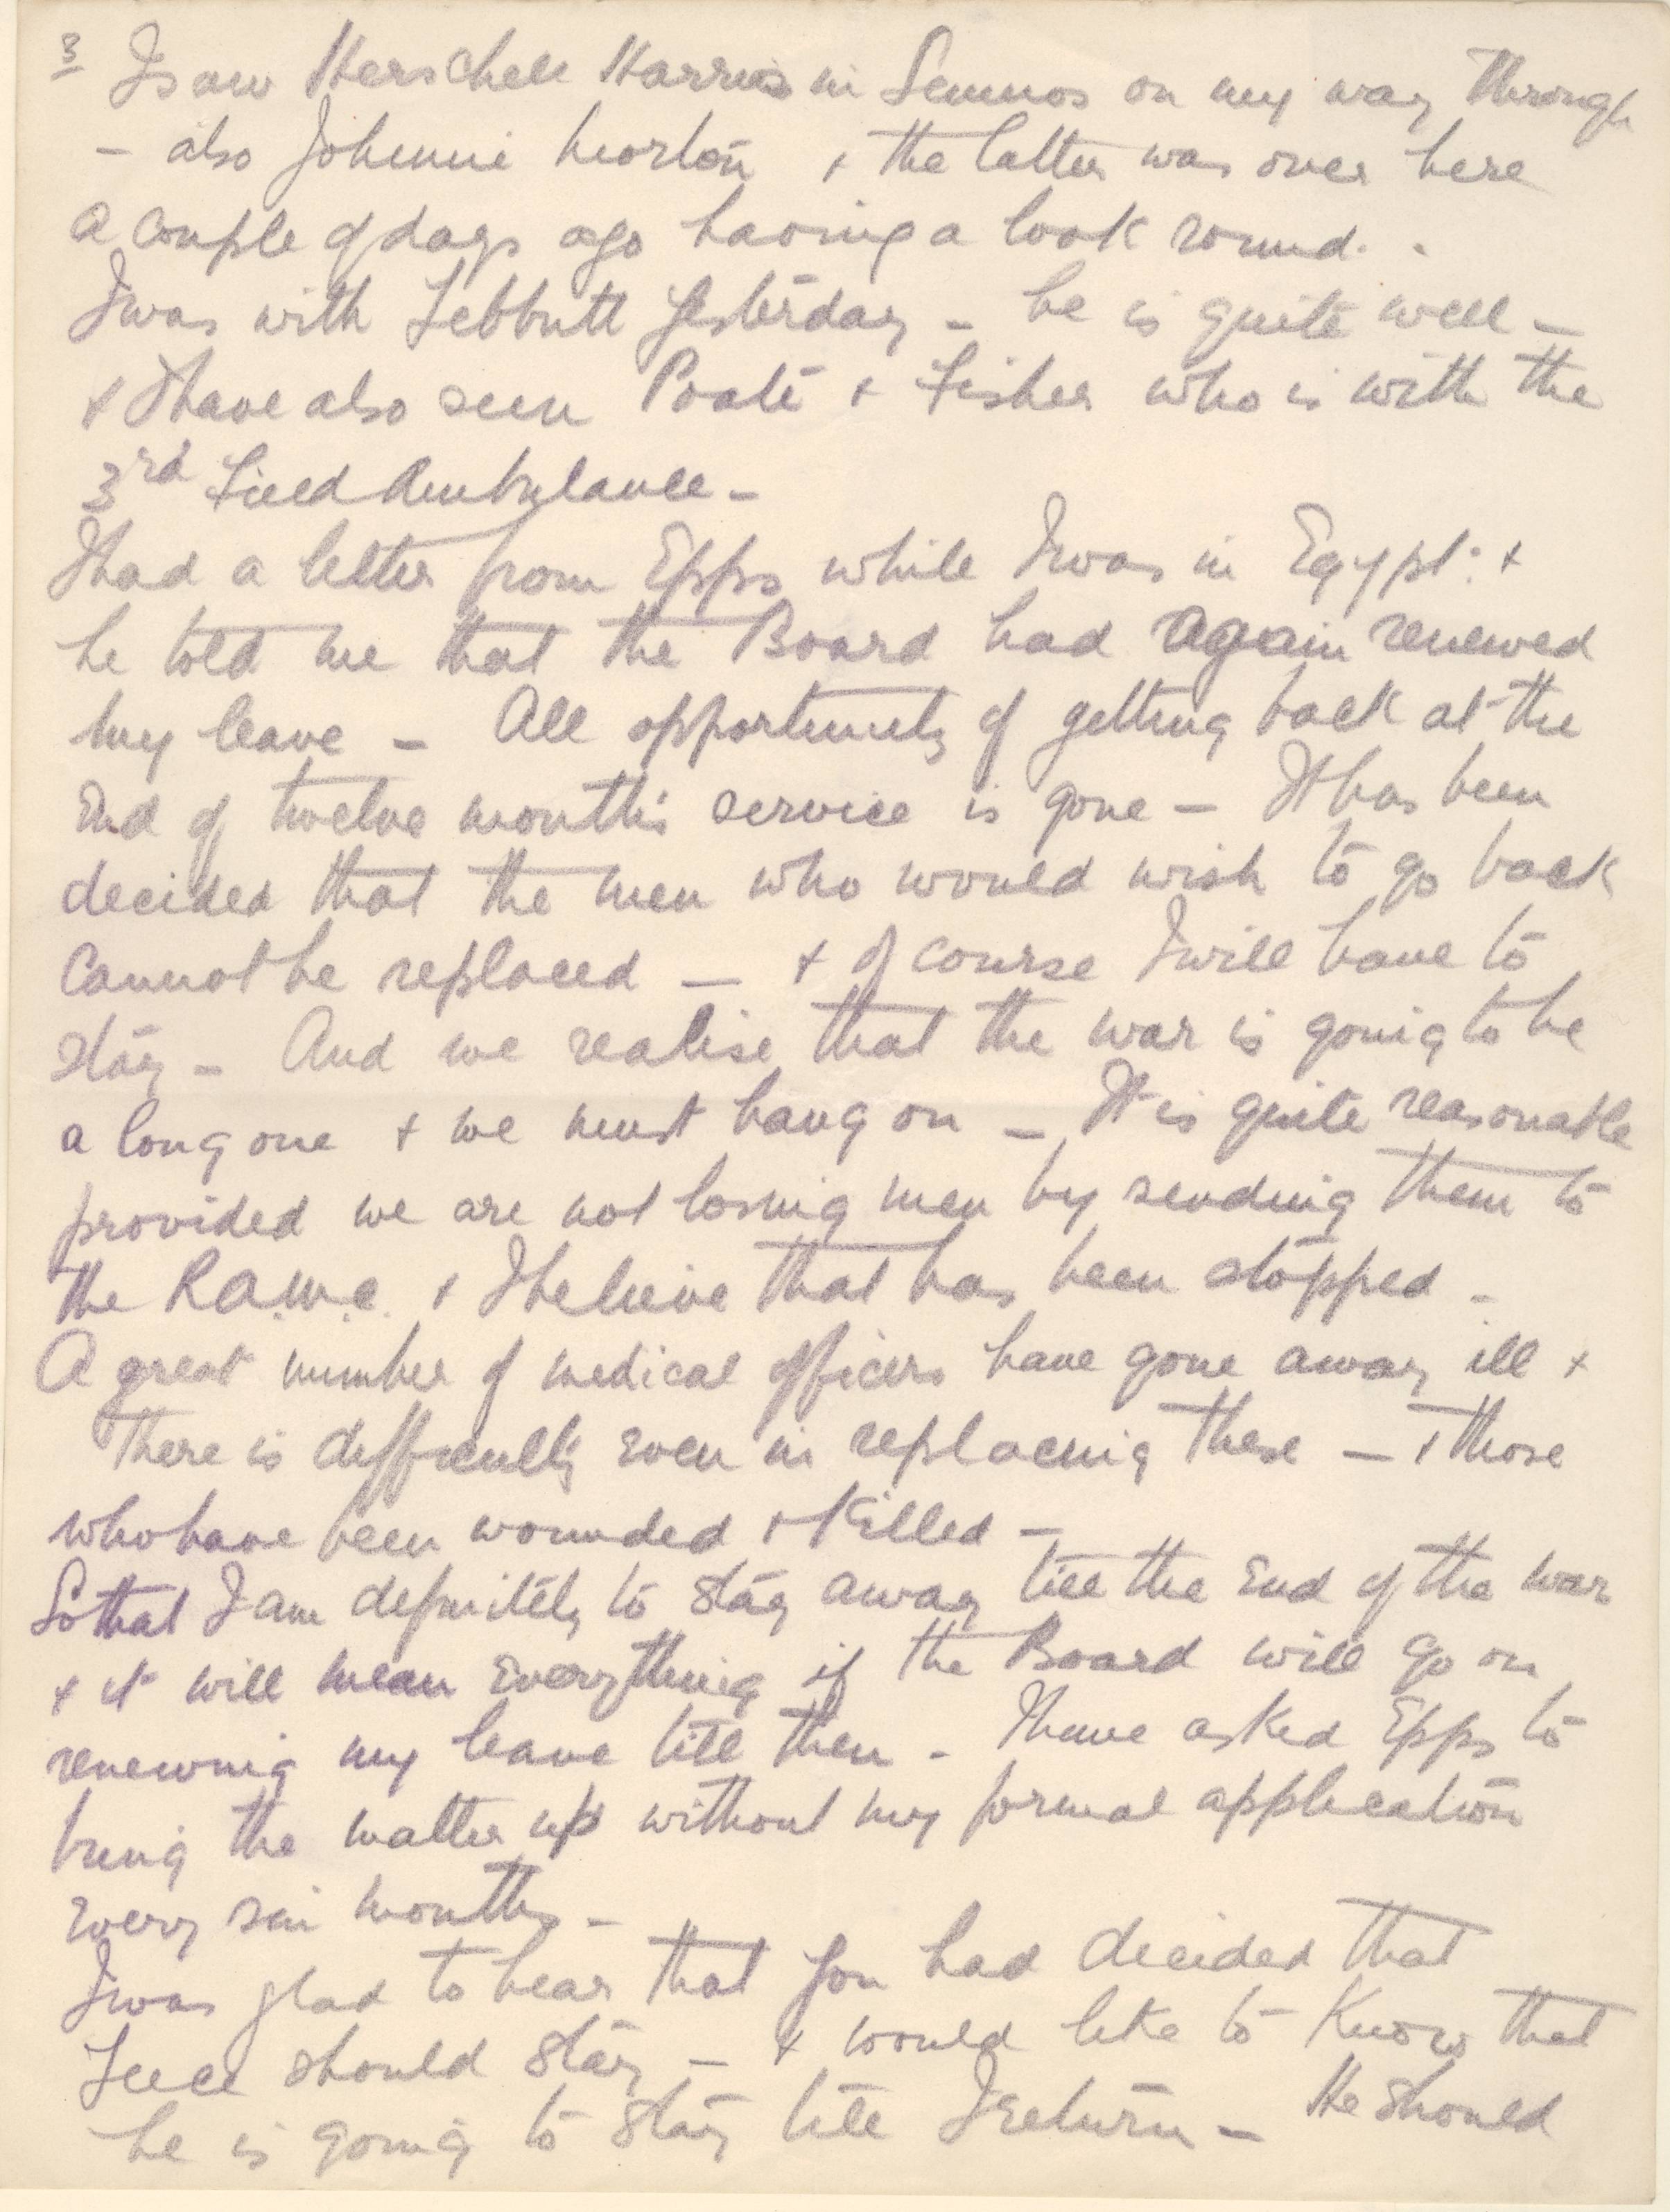 3 I saw Herschell Harris in Lemnos on my way through
– also Johnnie Morton & the latter was over here
a couple of days ago having a look round. .
I was with Tebbutt yesterday – he is quite well –
& I have also seen Poate & Fisher who is with the
3rd Field Ambulance –
I had a letter from Epps while I was in Egypt : &
he told me that the Board had again renewed
my leave – All opportunity of getting back at the
End of twelve month's service is gone – It has been
decided that the men who would wish to go back
Cannot be replaced – & of course I will have to
stay – And we realise that the war is going to be
a long one & we must hang on – It is quite reasonable
provided we are not losing men by sending them to
the R.A.M.C. & I believe that has been stopped –
A great number of medical officers have gone away ill &
there is difficulty Even in replacing these – & those
who have been wounded & Killed –
So that I am definitely to stay away till the End of the war
& it will mean Everything if the Board will go on
renewing my leave till then – I have asked Epps to
bring the matter up without my formal application
Every six months –
I was glad to hear that you had decided that
should stay – & would like to Know that
he is going to stay till I return – He should